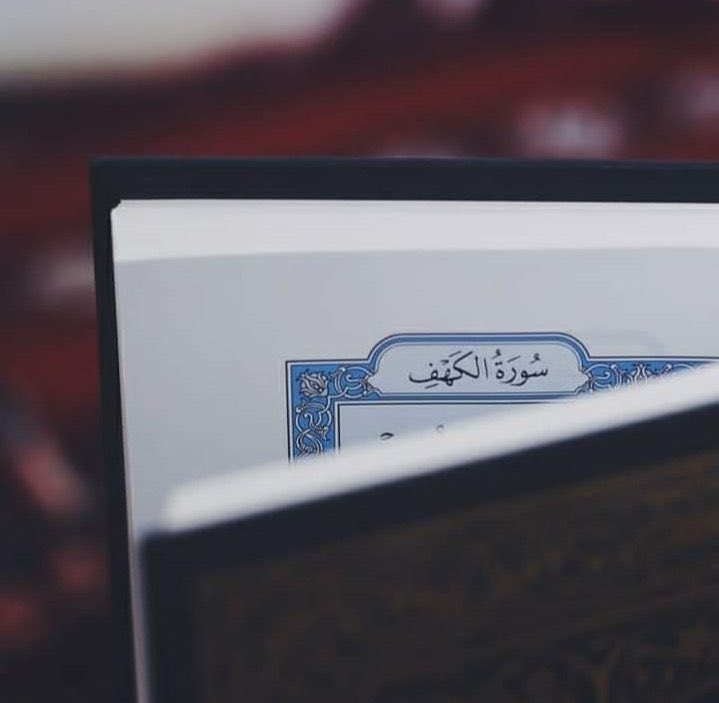 سُورَةُ الكَهْفِ